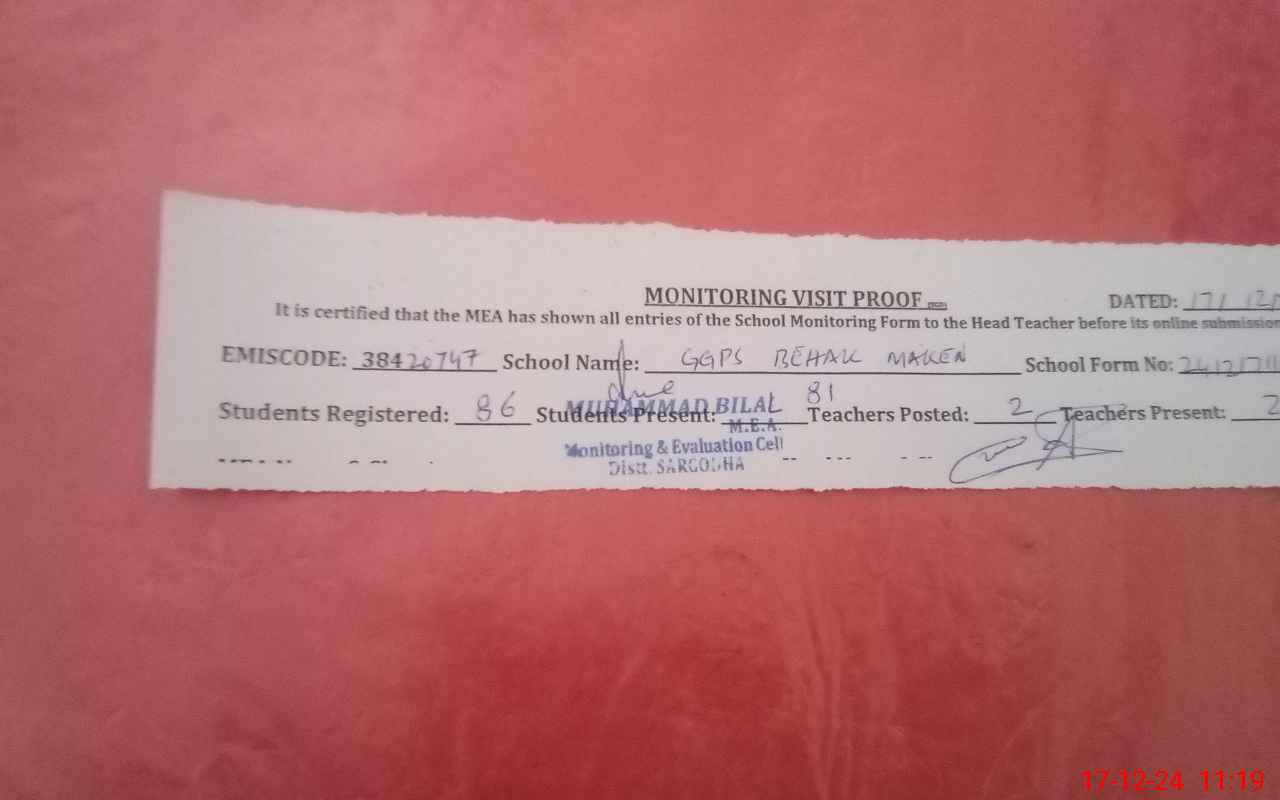 MONITORING VISIT PROOF
DATED: 17/ 12/
It is certified that the MEA has shown all entries of the School Monitoring Form to the Head Teacher before its online submission
EMISCODE: 38420747 School Name: GGPS BEHAK MAKEN School Form No: 24121711
Students Registered: 86 Students Present: 81 Teachers Posted: 2 Teachers Present: 2
MUHAMMAD BILAL
M.E.A.
Monitoring & Evaluation Cell
Distt. SARGODHA
17-12-24 11:19